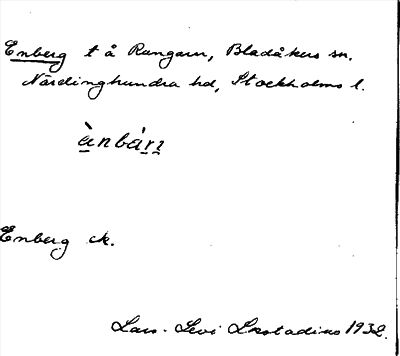 Enberg t å Rangarn, Bladåkers sn.
Närdinghundra hd, Stockholms l.
ànbárı
Enberg ck.
Lars-Levi Læstadius 1932.